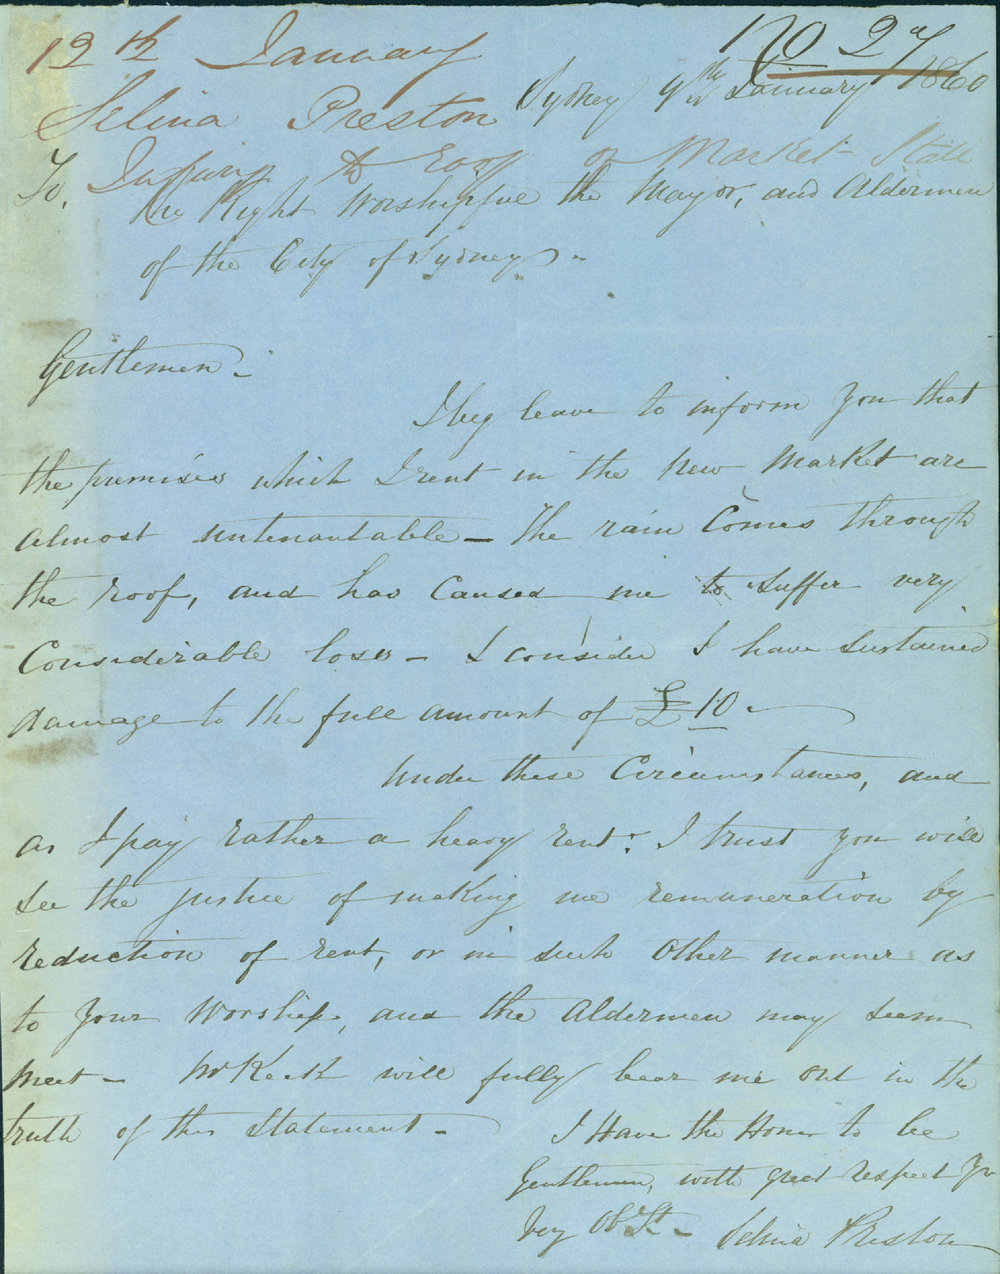 12th January
No 27
Selina Preston
Sydney 9th January 1860
to roof of Market Stall
To,
The Right Worshipful the Mayor, and Aldermen
of the City of Sydney -
Gentlemen -
I beg leave to inform you that
the premises which I rent in the New Market are
almost untenantable - The rain Comes through
the roof, and has Caused me to suffer very
Considerable loss - I consider I have sustained
damage to the full amount of £10 -
Under these Circumstances, and
as I pay rather a heavy rent: I trust you will
see the justice of making me remuneration by
reduction of rent, or in such other manner as
to your Worship, and the Aldermen may seem
meet - Mr Keck will fully bear me out in the
truth of this statement -
I Have the Honor to be
Gentlemen, with great respect Yr
Very Obt St - Selina Preston